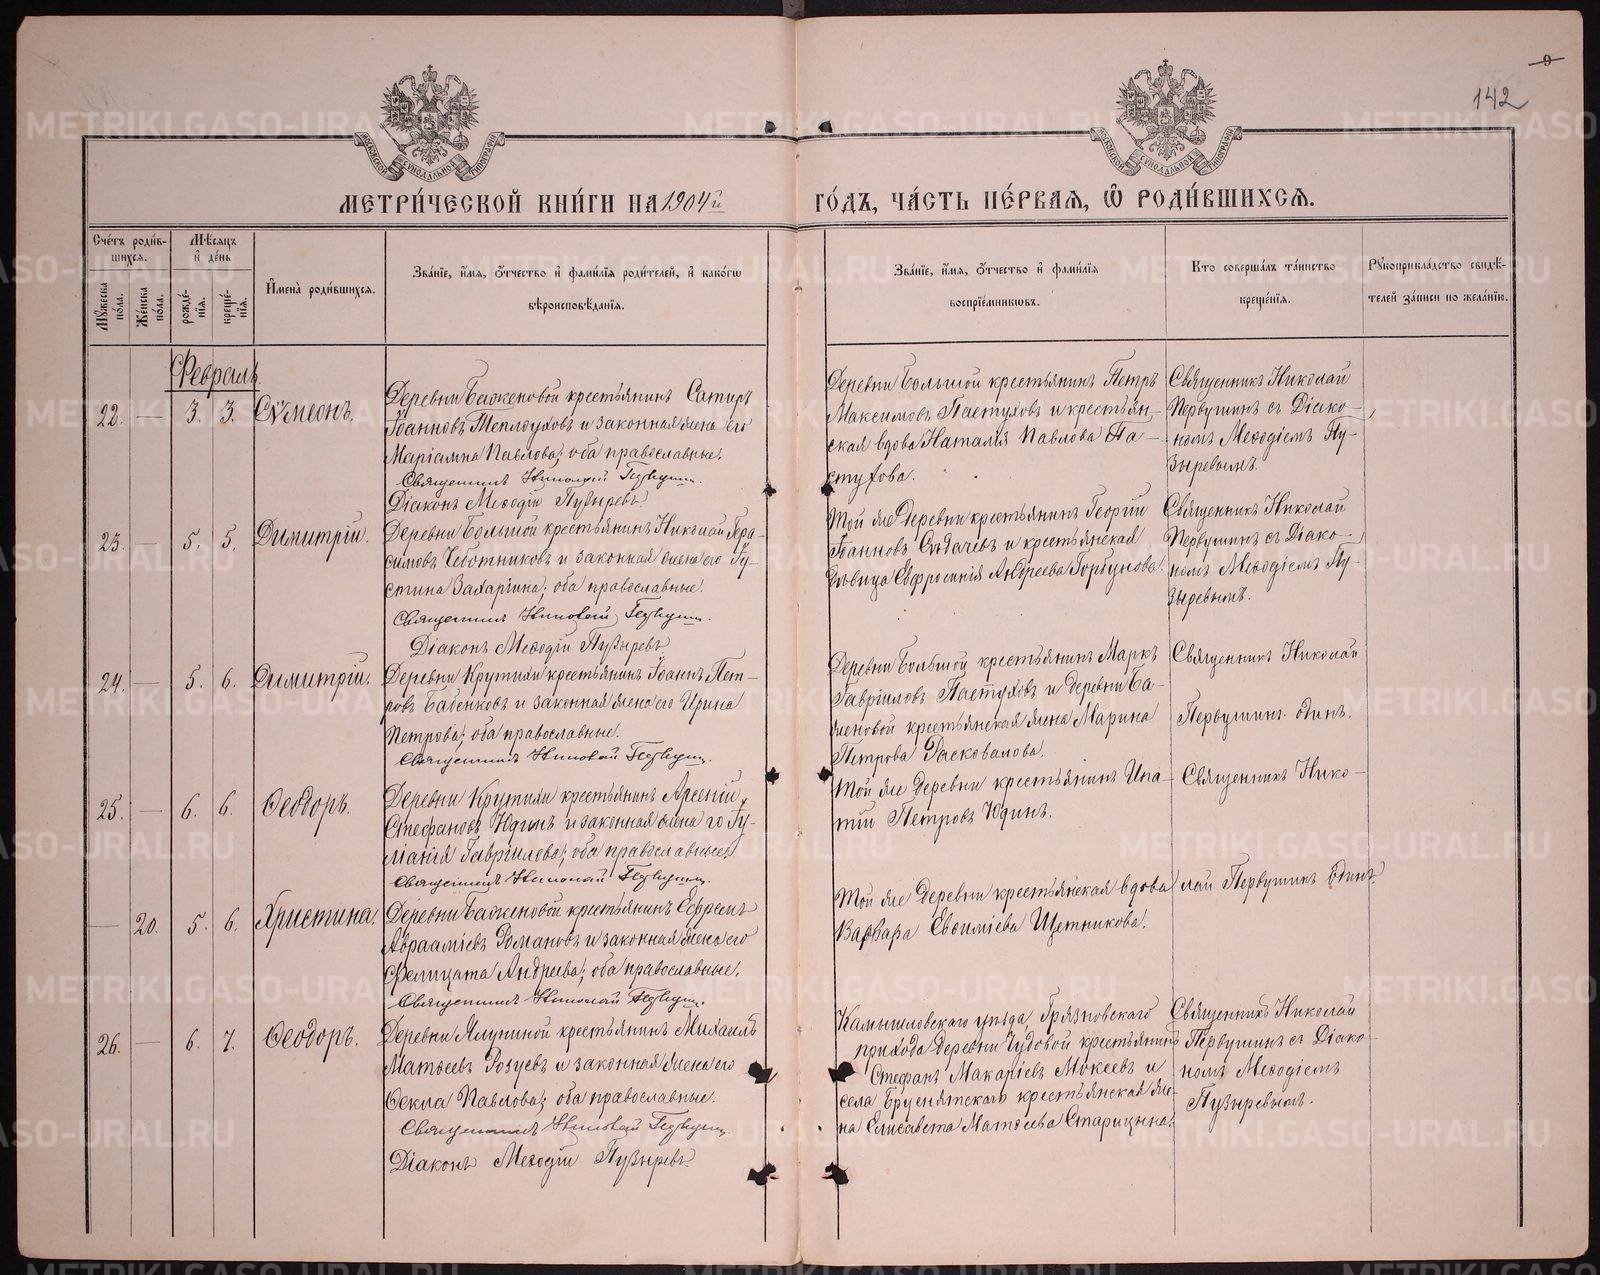 9
142
МОСКОВСКОЙ СѴНОДАЛЬНОЙ ТИПОГРАФІИ
МОСКОВСКОЙ СѴНОДАЛЬНОЙ ТИПОГРАФІИ
МЕТРИ́ЧЕСКОЙ КНИ́ГИ НА 1904й ГО́ДЪ, ЧА́СТЬ ПЕ́РВАЯ, Ѡ РОДИ́ВШИХСЯ.
Сче́тъ роди́в-
шихся.
Мꙋ́жеска по́ла.
Же́нска по́ла.
Мѣ́сяцъ
и҆ де́нь
рожде́-
нїя.
креще́-
нїя.
И҆мена̀ роди́вшихся.
Зва́нїе, и҆́мя, ѻ҆́тчество и҆ фами́лїя роди́телей, и҆ како́гѡ
вѣроисповѣ́данїя.
Зва́нїе, и҆́мя, ѻ҆́тчество и҆ фами́лїя
воспрїе́мникѡвъ.
Кто̀ соверша́лъ та́инство
креще́нїя.
Рꙋкоприкла́дство свидѣ́-
телей за́писи по жела́нїю.
Февраль.
22. — 3. 3. Сѵмеонъ.
Деревни Баженовой крестьянинъ Сатиръ
Іоанновъ Теплоуховъ и законная жена его
Маріамна Павлова; оба православные.
Священникъ Николай Первушин.
Діаконъ Меѳодій Пузыревъ
Деревни Большой крестьянинъ Петръ
Максимовъ Пастуховъ и крестьян-
ская вдова Наталія Павлова Па-
стухова.
Священникъ Николай
Первушинъ съ Діако-
номъ Меѳодіемъ Пу-
зыревымъ.
23. — 5. 5. Димитрій.
Деревни Большой крестьянинъ Николай Гера-
симовъ Чеботниковъ и законная жена его Іу-
стина Захаріина; оба православные.
Священникъ Николай Первушин.
Діаконъ Меѳодій Пузыревъ
Той же деревни крестьянинъ Георгій
Іоанновъ и крестьянская
дѣвица Евфросинія Андреева Горбунова.
Священникъ Николай
Первушинъ съ Діако-
номъ Меѳодіемъ Пу-
зыревымъ.
24. — 5. 6. Димитрій.
Деревни Крутихи крестьянинъ Іоаннъ Пет-
ровъ Бабенковъ и законная жена его Ирина
Петрова; оба православные.
Священникъ Николай Первушин.
Деревни Большой крестьянинъ Маркъ
Гавріиловъ Пастуховъ и деревни Ба-
женовой крестьянская жена Марина
Петрова Расковалова.
Священникъ Николай
Первушинъ одинъ.
25. — 6. 6. Ѳеодоръ.
Деревни Крутихи крестьянинъ Арсеній
Стефановъ Юдинъ и законная жена его Іу-
ліанія Гавріилова; оба православные.
Священникъ Николай Первушин.
Той же деревни крестьянинъ Ипа-
тій Петровъ Юдинъ.
Священникъ Нико-
— 20. 5. 6. Христина.
Деревни Баженовой крестьянинъ Ефремъ
Авраамievъ Романовъ и законная жена его
Фелицата Андреева; оба православные.
Священникъ Николай Первушин.
Той же деревни крестьянская вдова
Варвара Евѳиміева Щетникова.
лай Первушинъ одинъ.
26. — 6. 7. Ѳеодоръ.
Деревни Ялуниной крестьянинъ Михаилъ
Матѳеевъ и законная жена его
Ѳекла Павлова; оба православные.
Священникъ Николай Первушин.
Діаконъ Меѳодій Пузыревъ.
Камышловскаго уѣзда, Грязновскаго
прихода деревни Чудовой крестьянинъ
Стефанъ Макаріевъ Мокеевъ и
села Бруснятскаго крестьянская же-
на Елисавета Матѳеева Старицына.
Священникъ Николай
Первушинъ съ Діако-
номъ Меѳодіемъ
Пузыревымъ.